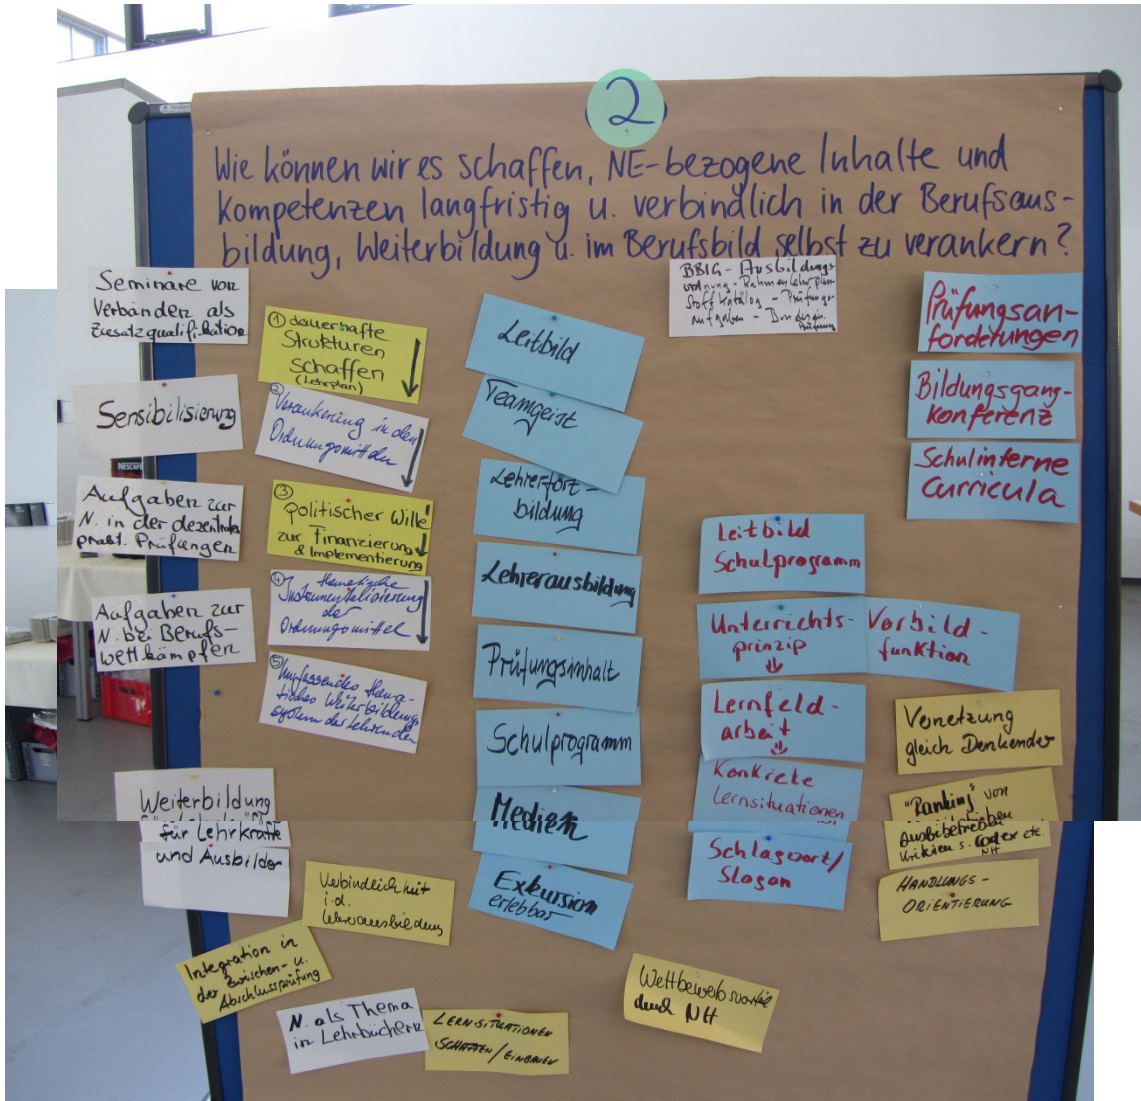 2
Wie können wir es schaffen, NE-bezogene Inhalte und
Kompetenzen langfristig u. verbindlich in der Berufsaus-
bildung, Weiterbildung u. im Berufsbild selbst zu verankern?
Seminare von
Verbänden als
Zusatzqualifikation
Sensibilisierung
Aufgaben zur
N. in der dezentralen
prakt. Prüfungen
Aufgaben zur
N. bei Berufs-
wettkämpfen
Weiterbildung
für Lehrkräfte
und Ausbilder
① dauerhafte
Strukturen
schaffen
(Lehrplan)
② Verankerung in den
Ordnungsmitteln
③
politischer Wille!
zur Finanzierung
& Implementierung
④ thematische
Instrumentalisierung
der
Ordnungsmittel
⑤ Umfassendes thema-
tisches Weiterbildungs
system der Lehrenden
Verbindlichkeit
i.d.
Lehrerausbildung
Integration in
der Zwischen- u.
Abschlussprüfung
N. als Thema
in Lehrbüchern
LERNSITUATIONEN
SCHAFFEN / EINBAUEN
Leitbild
Teamgeist
Lehrerfort-
bildung
Lehrerausbildung
Prüfungsinhalt
Schulprogramm
Medien
Exkursion
erlebbar
BBIG - Ausbildungs-
ordnung - Rahmenlehrplan
Stoffkatalog - Prüfungs-
aufgaben -
Leitbild
Schulprogramm
Unterrichts-
prinzip
Vorbild-
funktion
Lernfeld-
arbeit
Konkrete
Lernsituationen
Schlagwort/
Slogan
Wettbewerbsvorteile
durch NH
Prüfungsan-
forderungen
Bildungsgang-
konferenz
Schulinterne
Curricula
Vernetzung
gleich Denkender
"Ranking" von
Ausbibetrieben
Kritrien s. Codex etc.
NH
HANDLUNGS-
ORIENTIERUNG
NESCAFÉ